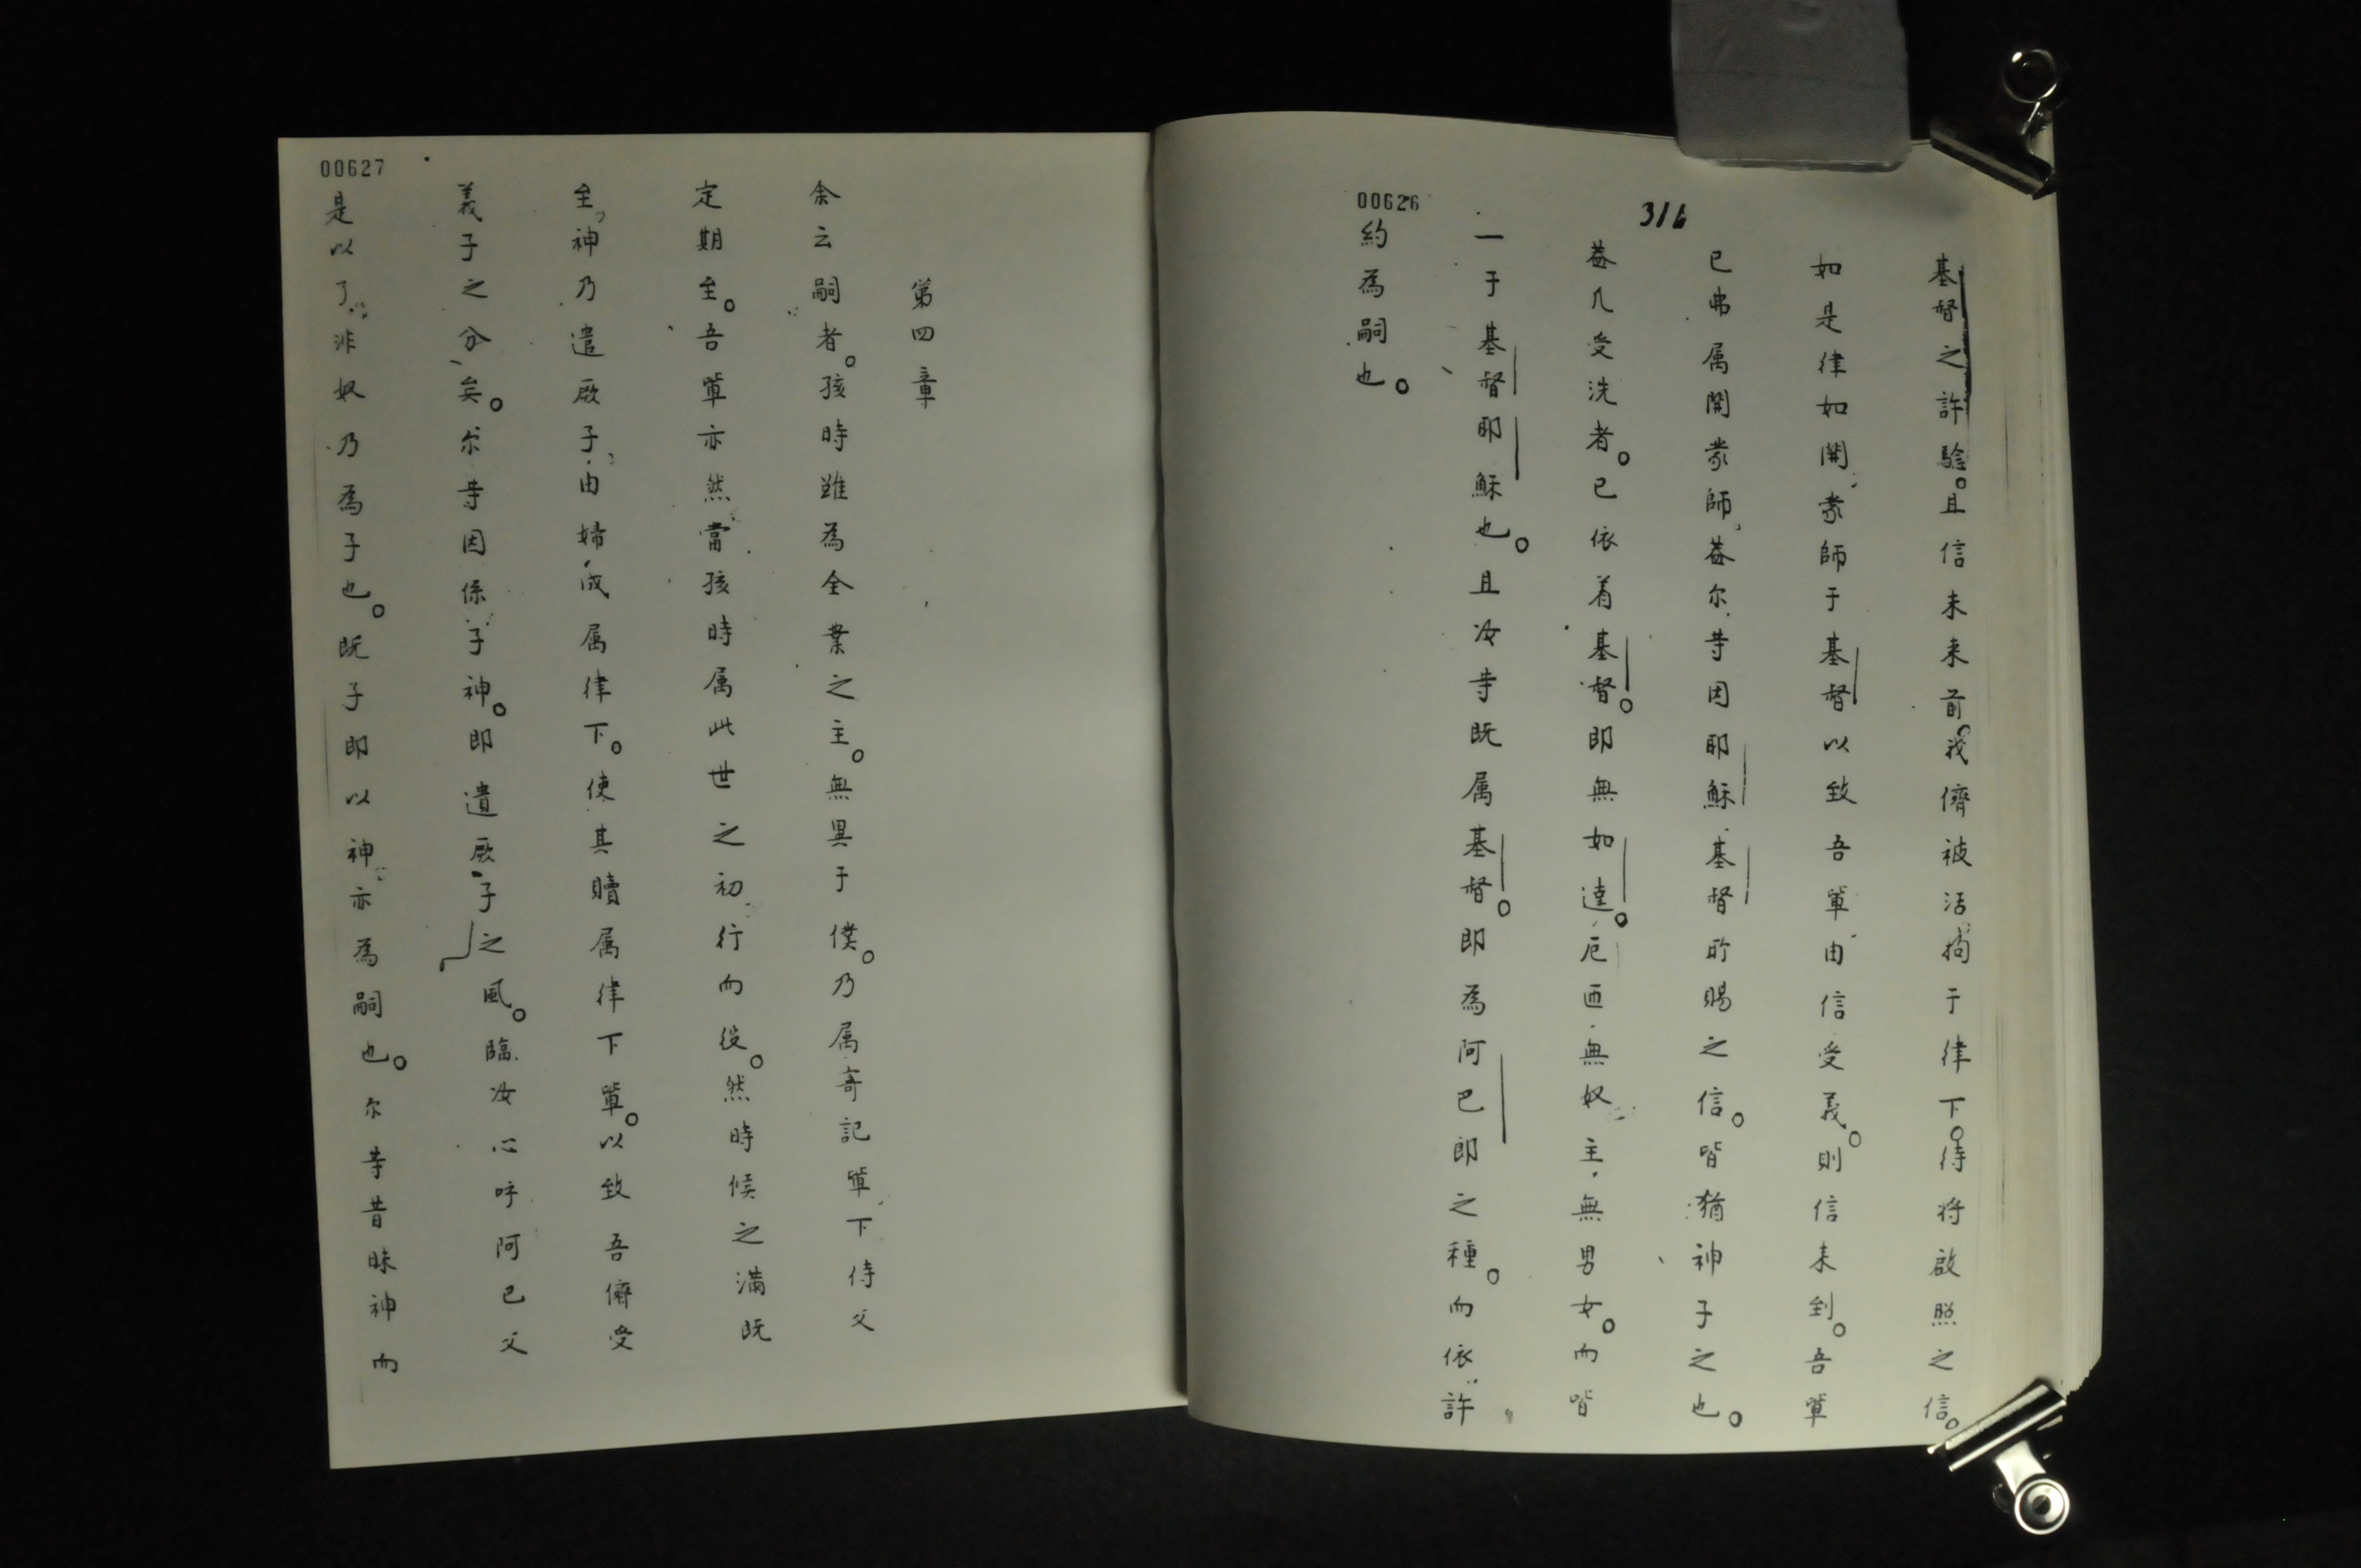 00626
316
基督之許騐。且信未来前。我儕被活拘于律下。待将啟照之信。
如是律如開蒙師于基督以致吾軰由信受義。則信未到。吾軰
已弗属開蒙師、葢尔䒭因耶穌基督所賜之信。皆猶神子之也。
葢凡受洗者。已依着基督。即無如達。厄匝無奴主、無男女。而皆
一于基督耶穌也。且汝䒭既属基督。即為阿巴即之種。而依許
約為嗣也。
00627
第四章
余云嗣者。孩時雖為全業之主。無異于僕。乃属寄記軰下侍父
定期至。吾軰亦然當孩時属此世之初行而役。然時候之満既
至、神乃遣厥子、由婦成属律下。使其贖属律下軰。以致吾儕受
義子之分矣。尔䒭因係子神。即遣厥子之風。臨汝心呼阿巴父
是以了非奴乃為子也。既子即以神亦為嗣也。尔䒭昔昧神而